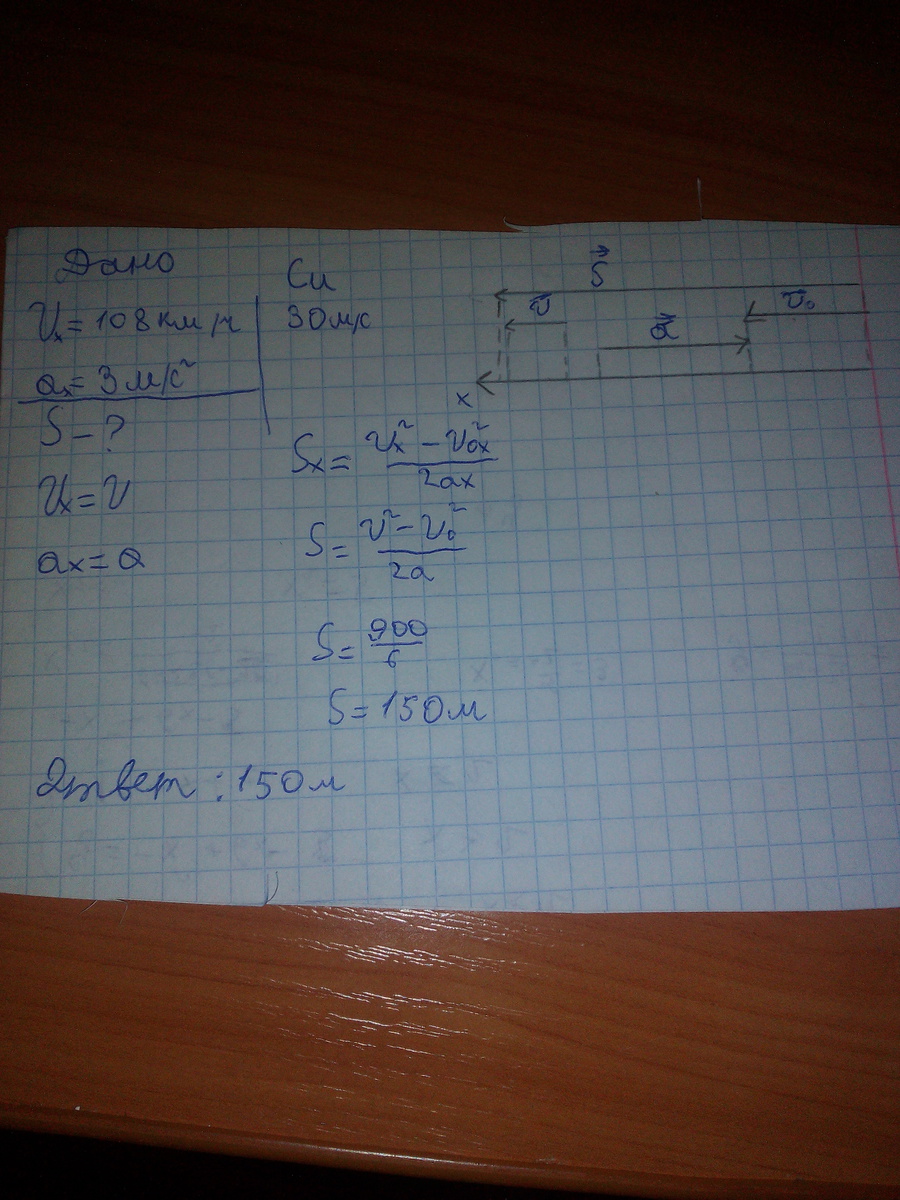 Дано
Си
Vx = 108 км/ч
30 м/с
ax = 3 м/с²
S – ?
Vx = V
ax = a
S⃗
v⃗
v⃗₀
a⃗
x
Sx = (Vx² – V₀x²) / 2ax
S = (V² – V₀²) / 2a
S = 900 / 6
S = 150 м
Ответ : 150 м